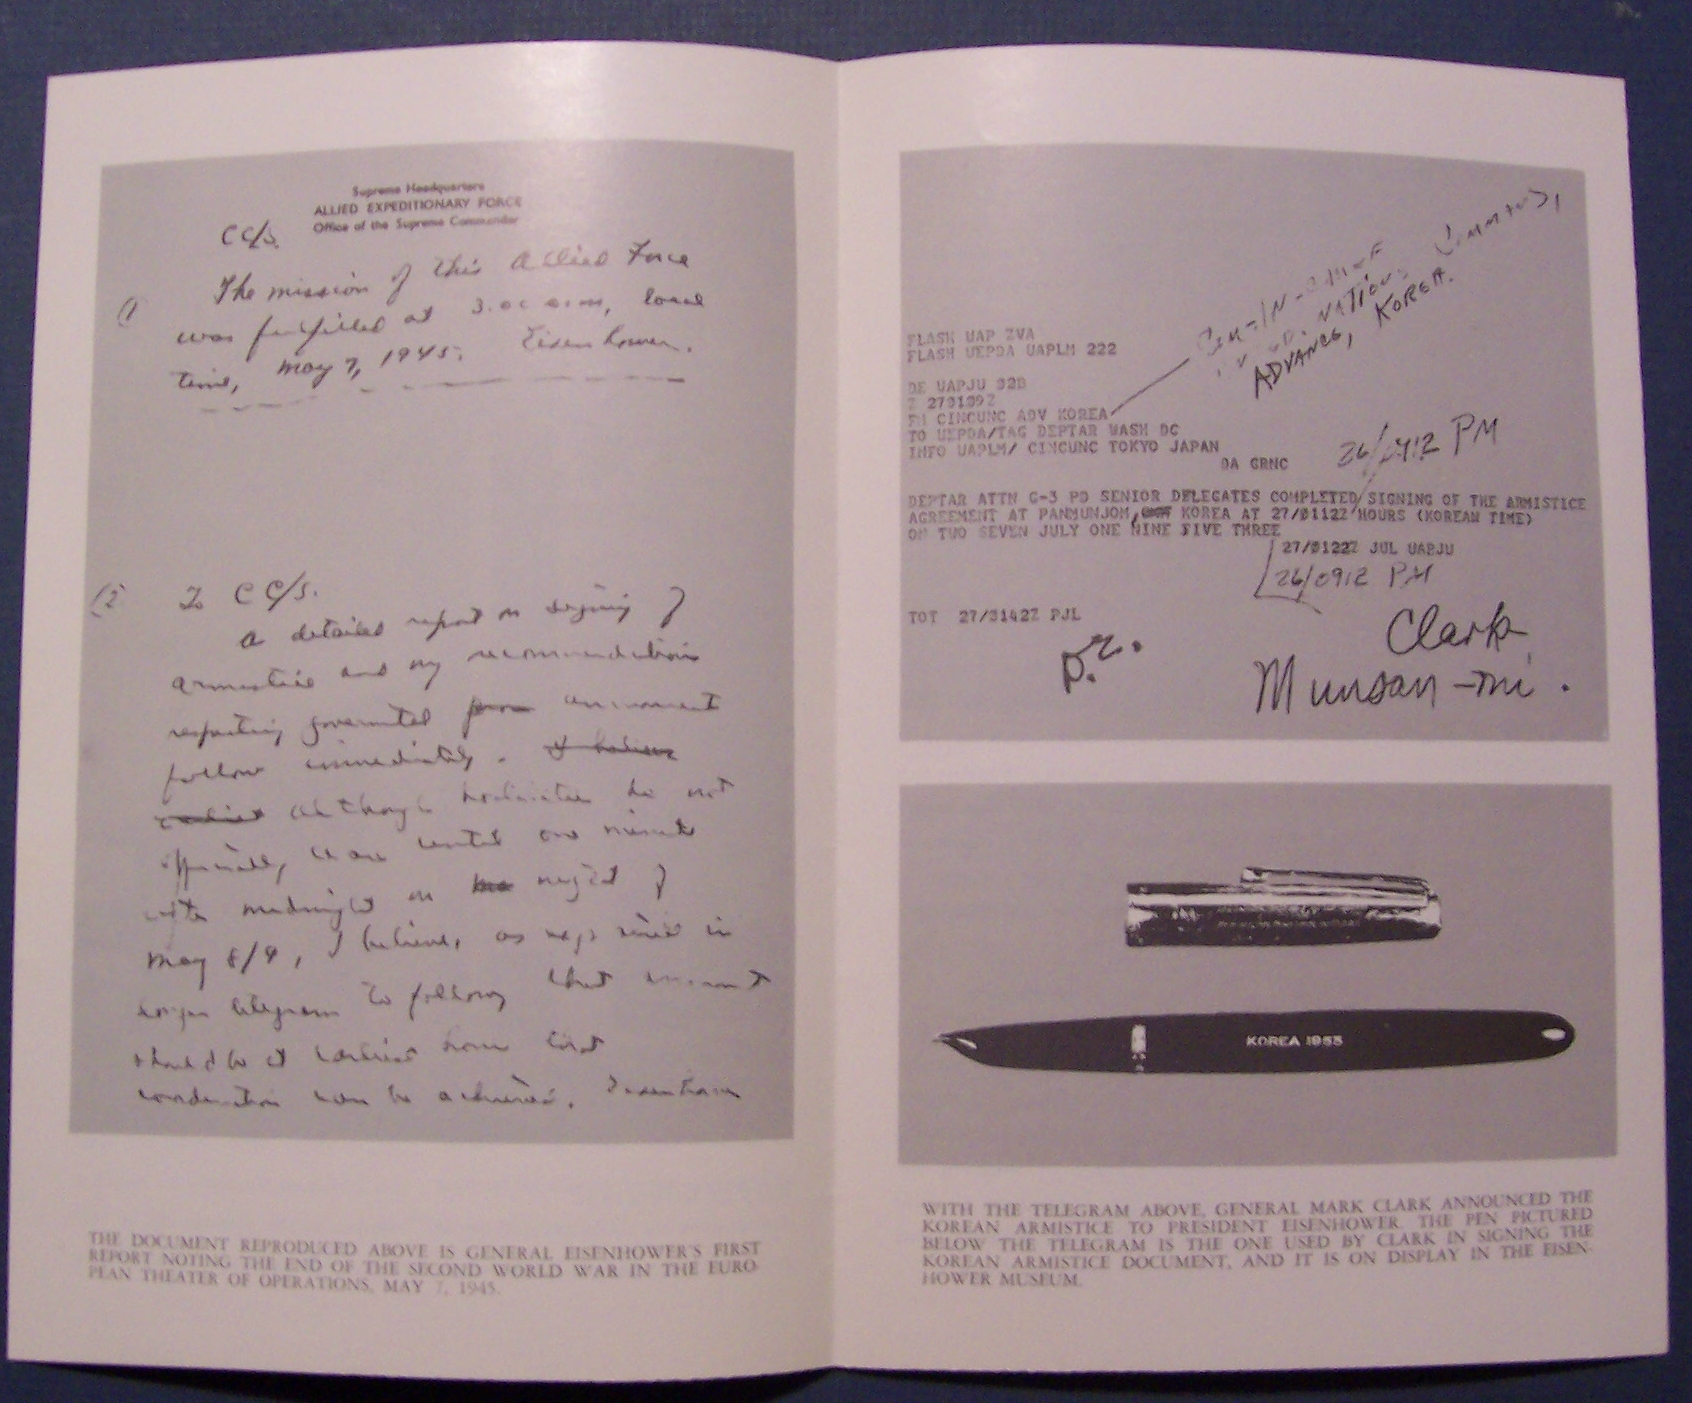 Supreme Headquarters
ALLIED EXPEDITIONARY FORCE
Office of the Supreme Commander
CC/S.
(1
The mission of this Allied Force
was fulfilled at 3.00 a.m., local
time, May 7, 1945. Eisenhower.
(2
To CC/S.
A detailed report on signing of
armistice and my recommendations
respecting governmental announcement
follow immediately.
although hostilities do not
officially cease until one minute
after midnight on night of
May 8/9, I believe, as explained in
longer telegram to follow, that announcement
should be at earliest hour that
coordination can be achieved. Eisenhower
THE DOCUMENT REPRODUCED ABOVE IS GENERAL EISENHOWER'S FIRST
REPORT NOTING THE END OF THE SECOND WORLD WAR IN THE EURO-
PEAN THEATER OF OPERATIONS, MAY 7, 1945.
COM-IN-CHIEF
UNITED NATIONS COMMAND,
ADVANCE, KOREA.
FLASH UAP ZVA
FLASH UEPDA UAPLM 222
DE UAPJU 02B
Z 270109Z
FM CINCUNC ADV KOREA
TO UEPDA/TAG DEPTAR WASH DC
INFO UAPLM/ CINCUNC TOKYO JAPAN
DA GRNC
26/0912 PM
DEPTAR ATTN G-3 PD SENIOR DELEGATES COMPLETED SIGNING OF THE ARMISTICE
AGREEMENT AT PANMUNJOM, KOREA AT 27/0112Z HOURS (KOREAN TIME)
ON TWO SEVEN JULY ONE NINE FIVE THREE
27/0122Z JUL UAPJU
26/0912 PM
TOT 27/0142Z PJL
Clark
D.E.
Munsan-ni.
KOREA 1953
WITH THE TELEGRAM ABOVE, GENERAL MARK CLARK ANNOUNCED THE
KOREAN ARMISTICE TO PRESIDENT EISENHOWER. THE PEN PICTURED
BELOW THE TELEGRAM IS THE ONE USED BY CLARK IN SIGNING THE
KOREAN ARMISTICE DOCUMENT, AND IT IS ON DISPLAY IN THE EISEN-
HOWER MUSEUM.